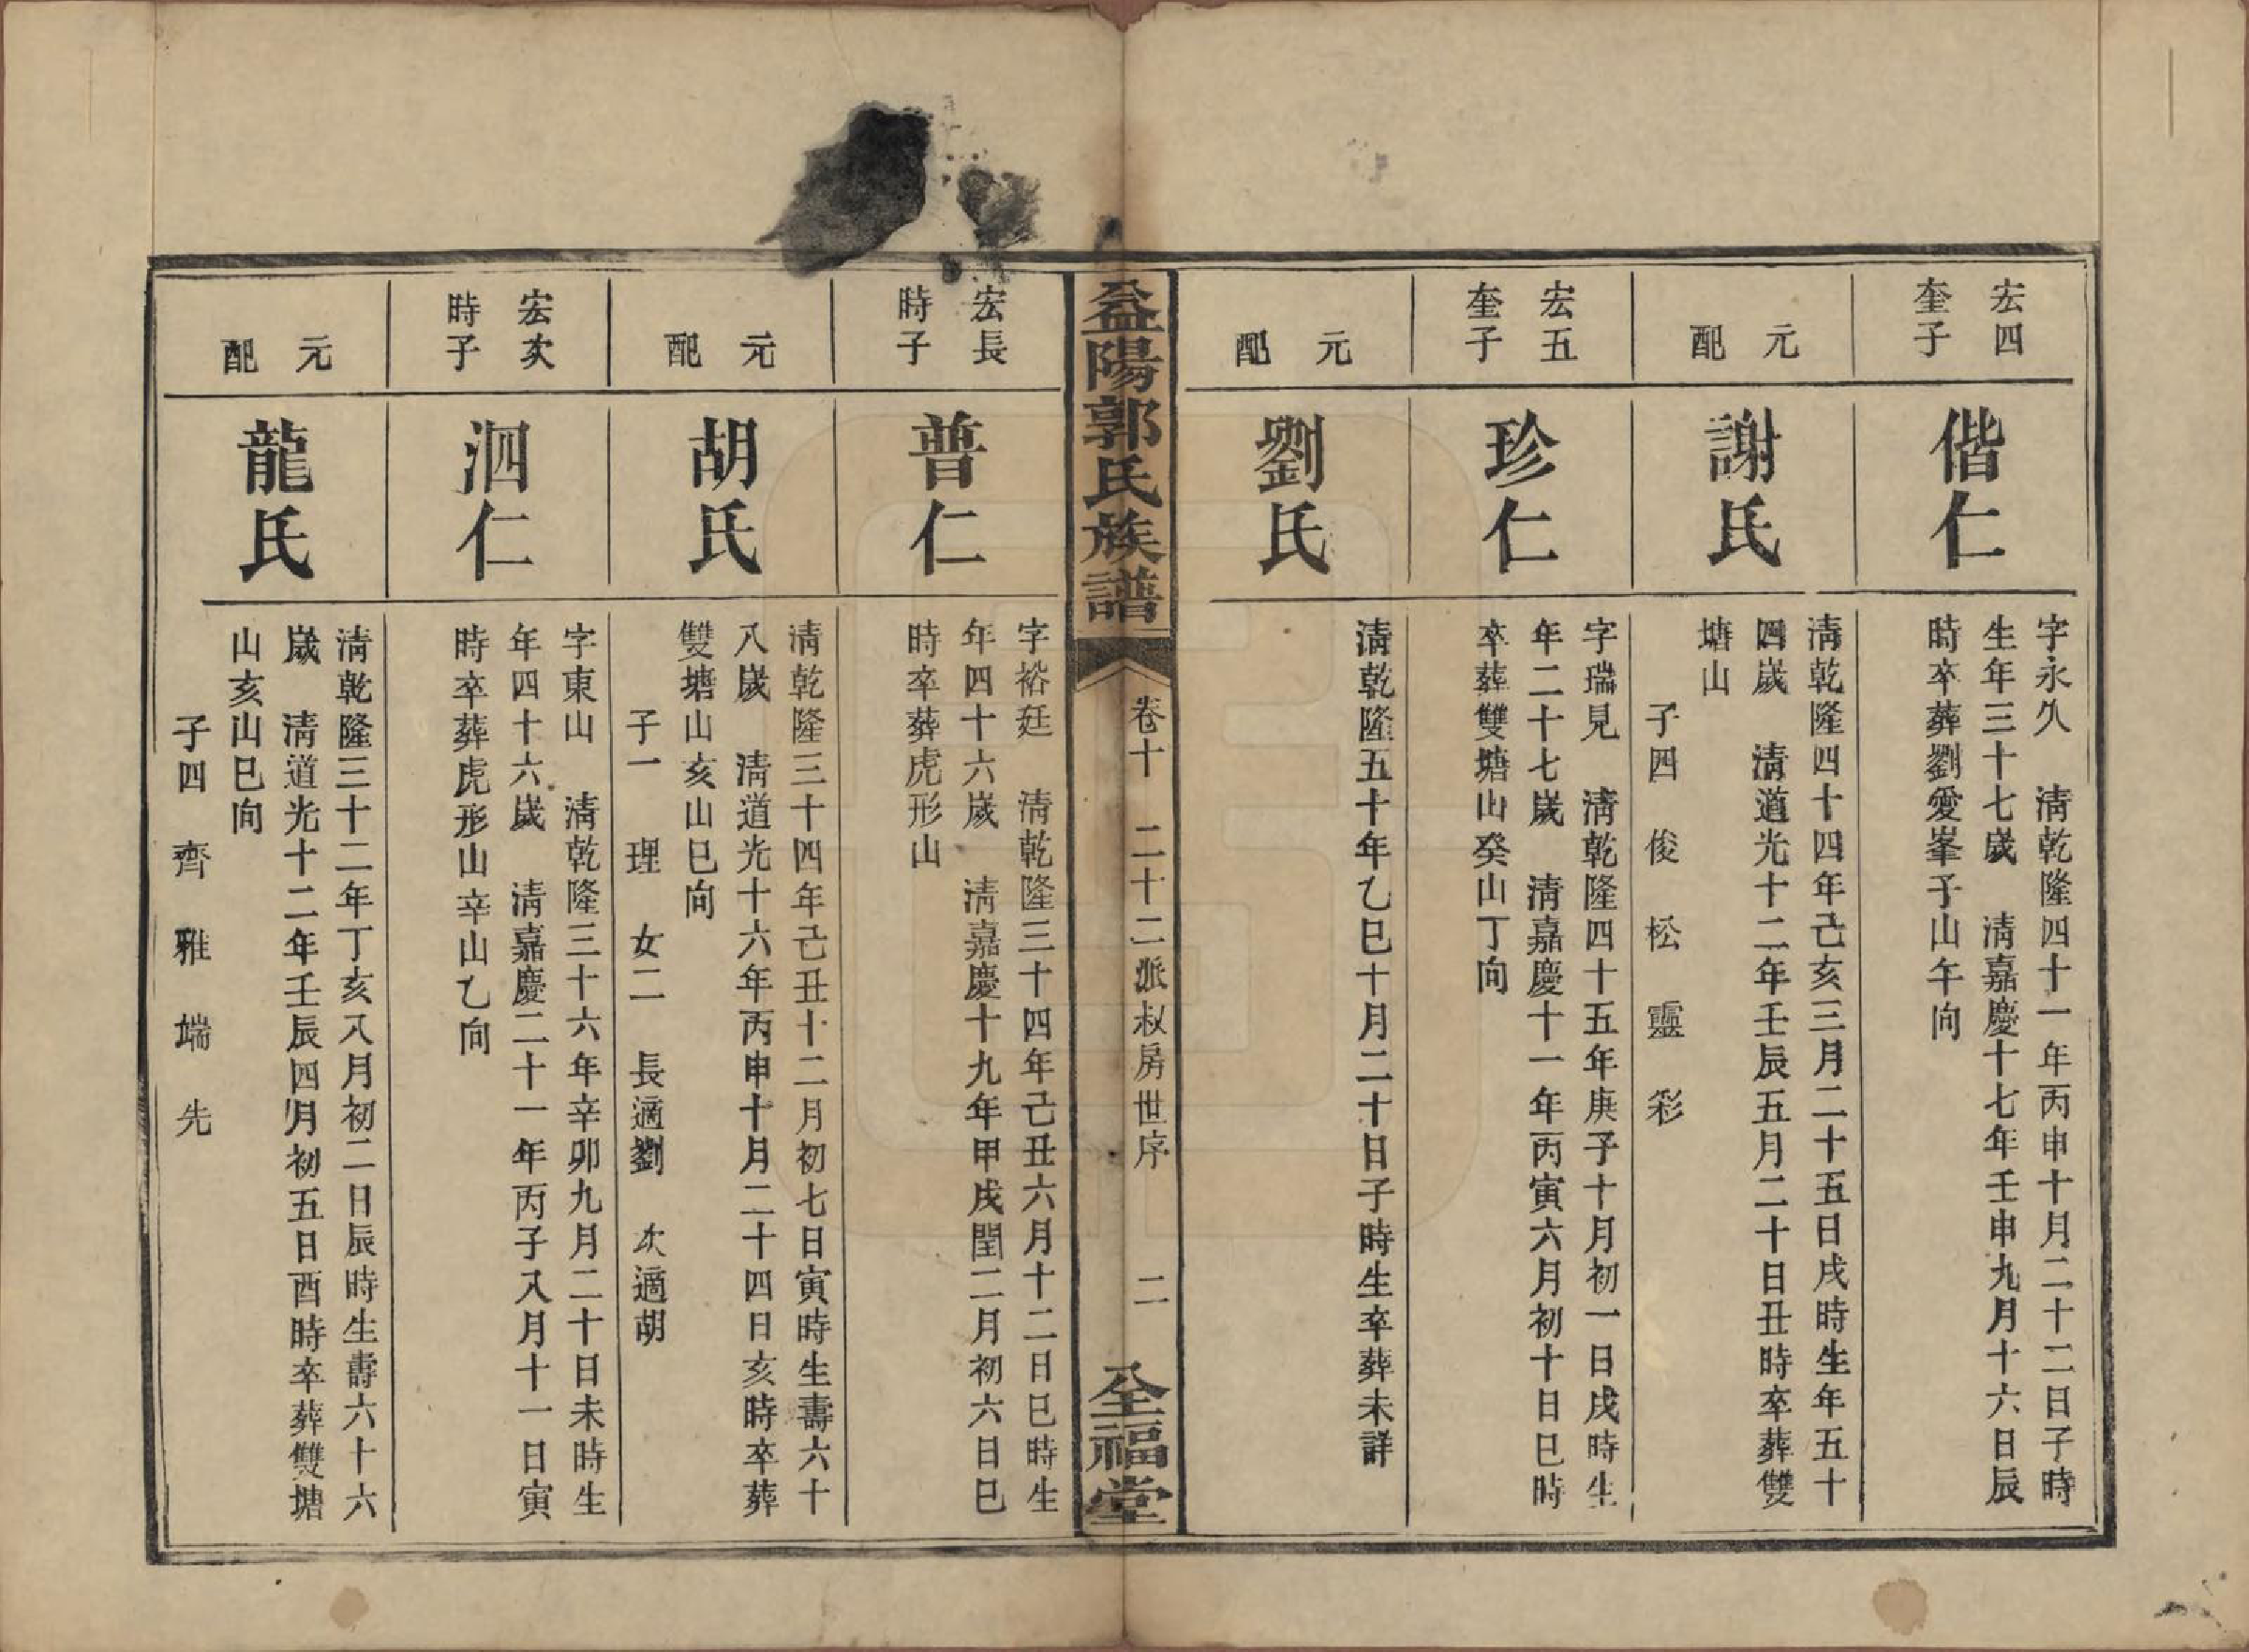 宏四
奎子
偕仁
字永久　清乾隆四十一年丙申十月二十二日子時
生年三十七歲　清嘉慶十七年壬申九月十六日辰
時卒葬劉愛峯子山午向
元
配
謝氏
清乾隆四十四年己亥三月二十五日戌時生年五十
四歲　清道光十二年壬辰五月二十日丑時卒葬雙
塘山
子四　俊　松　靈　彩
宏五
奎子
珍仁
字瑞見　清乾隆四十五年庚子十月初一日戌時生
年二十七歲　清嘉慶十一年丙寅六月初十日巳時
卒葬雙塘山癸山丁向
元
配
劉氏
清乾隆五十年乙巳十月二十日子時生卒葬未詳
益陽郭氏族譜
卷十　二十二派叔房世序　二
全福堂
宏長
時子
普仁
字裕廷　清乾隆三十四年己丑六月十二日巳時生
年四十六歲　清嘉慶十九年甲戌閏二月初六日巳
時卒葬虎形山
元
配
胡氏
清乾隆三十四年己丑十二月初七日寅時生壽六十
八歲　清道光十六年丙申十月二十四日亥時卒葬
雙塘山亥山巳向
子一　理　女二　長適劉　次適胡
宏次
時子
泗仁
字東山　清乾隆三十六年辛卯九月二十日未時生
年四十六歲　清嘉慶二十一年丙子八月十一日寅
時卒葬虎形山辛山乙向
元
配
龍氏
清乾隆三十二年丁亥八月初二日辰時生壽六十六
歲　清道光十二年壬辰四月初五日酉時卒葬雙塘
山亥山巳向
子四　齊　雅　端　先